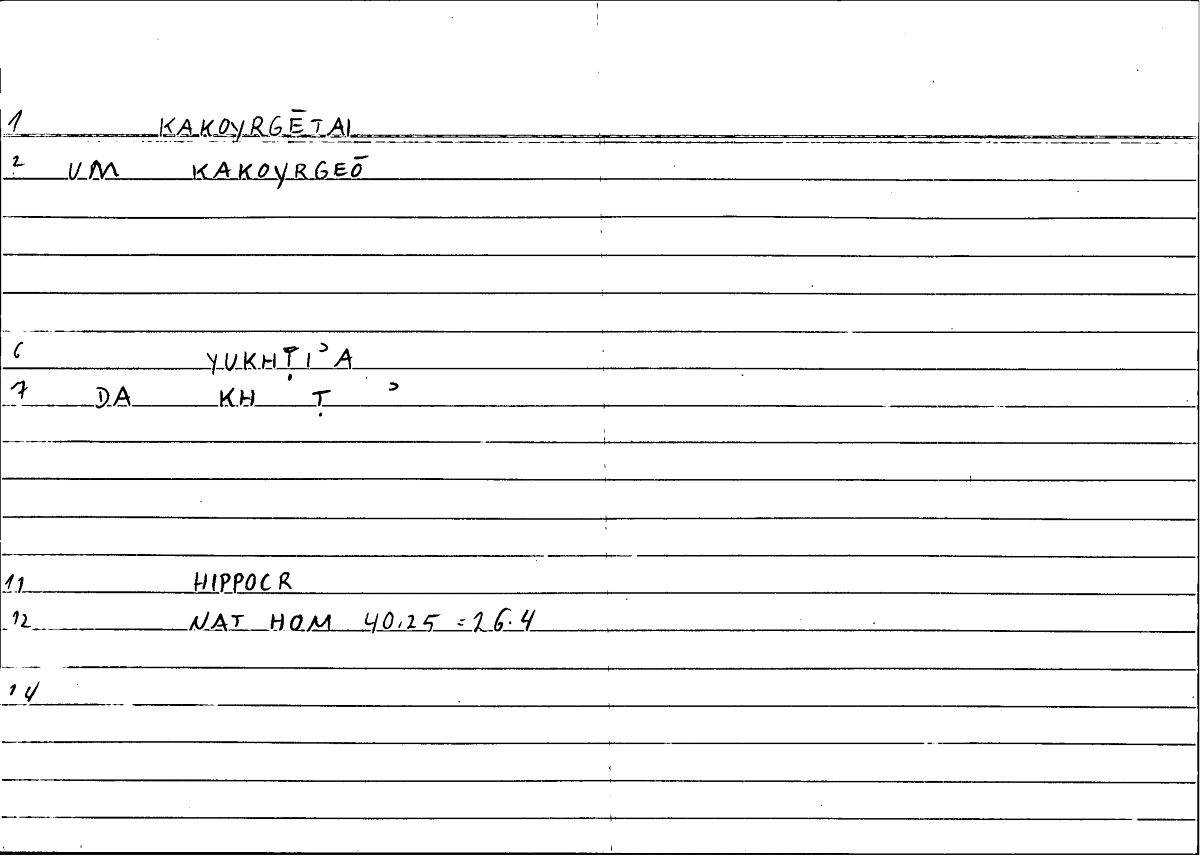 1 KAKOYRGĒTAI
2 VM KAKOYRGEŌ
6 YUKHṬIʾA
7 DA KH Ṭ ʾ
11 HIPPOCR
12 NAT HOM 40.25 = 26.4
14